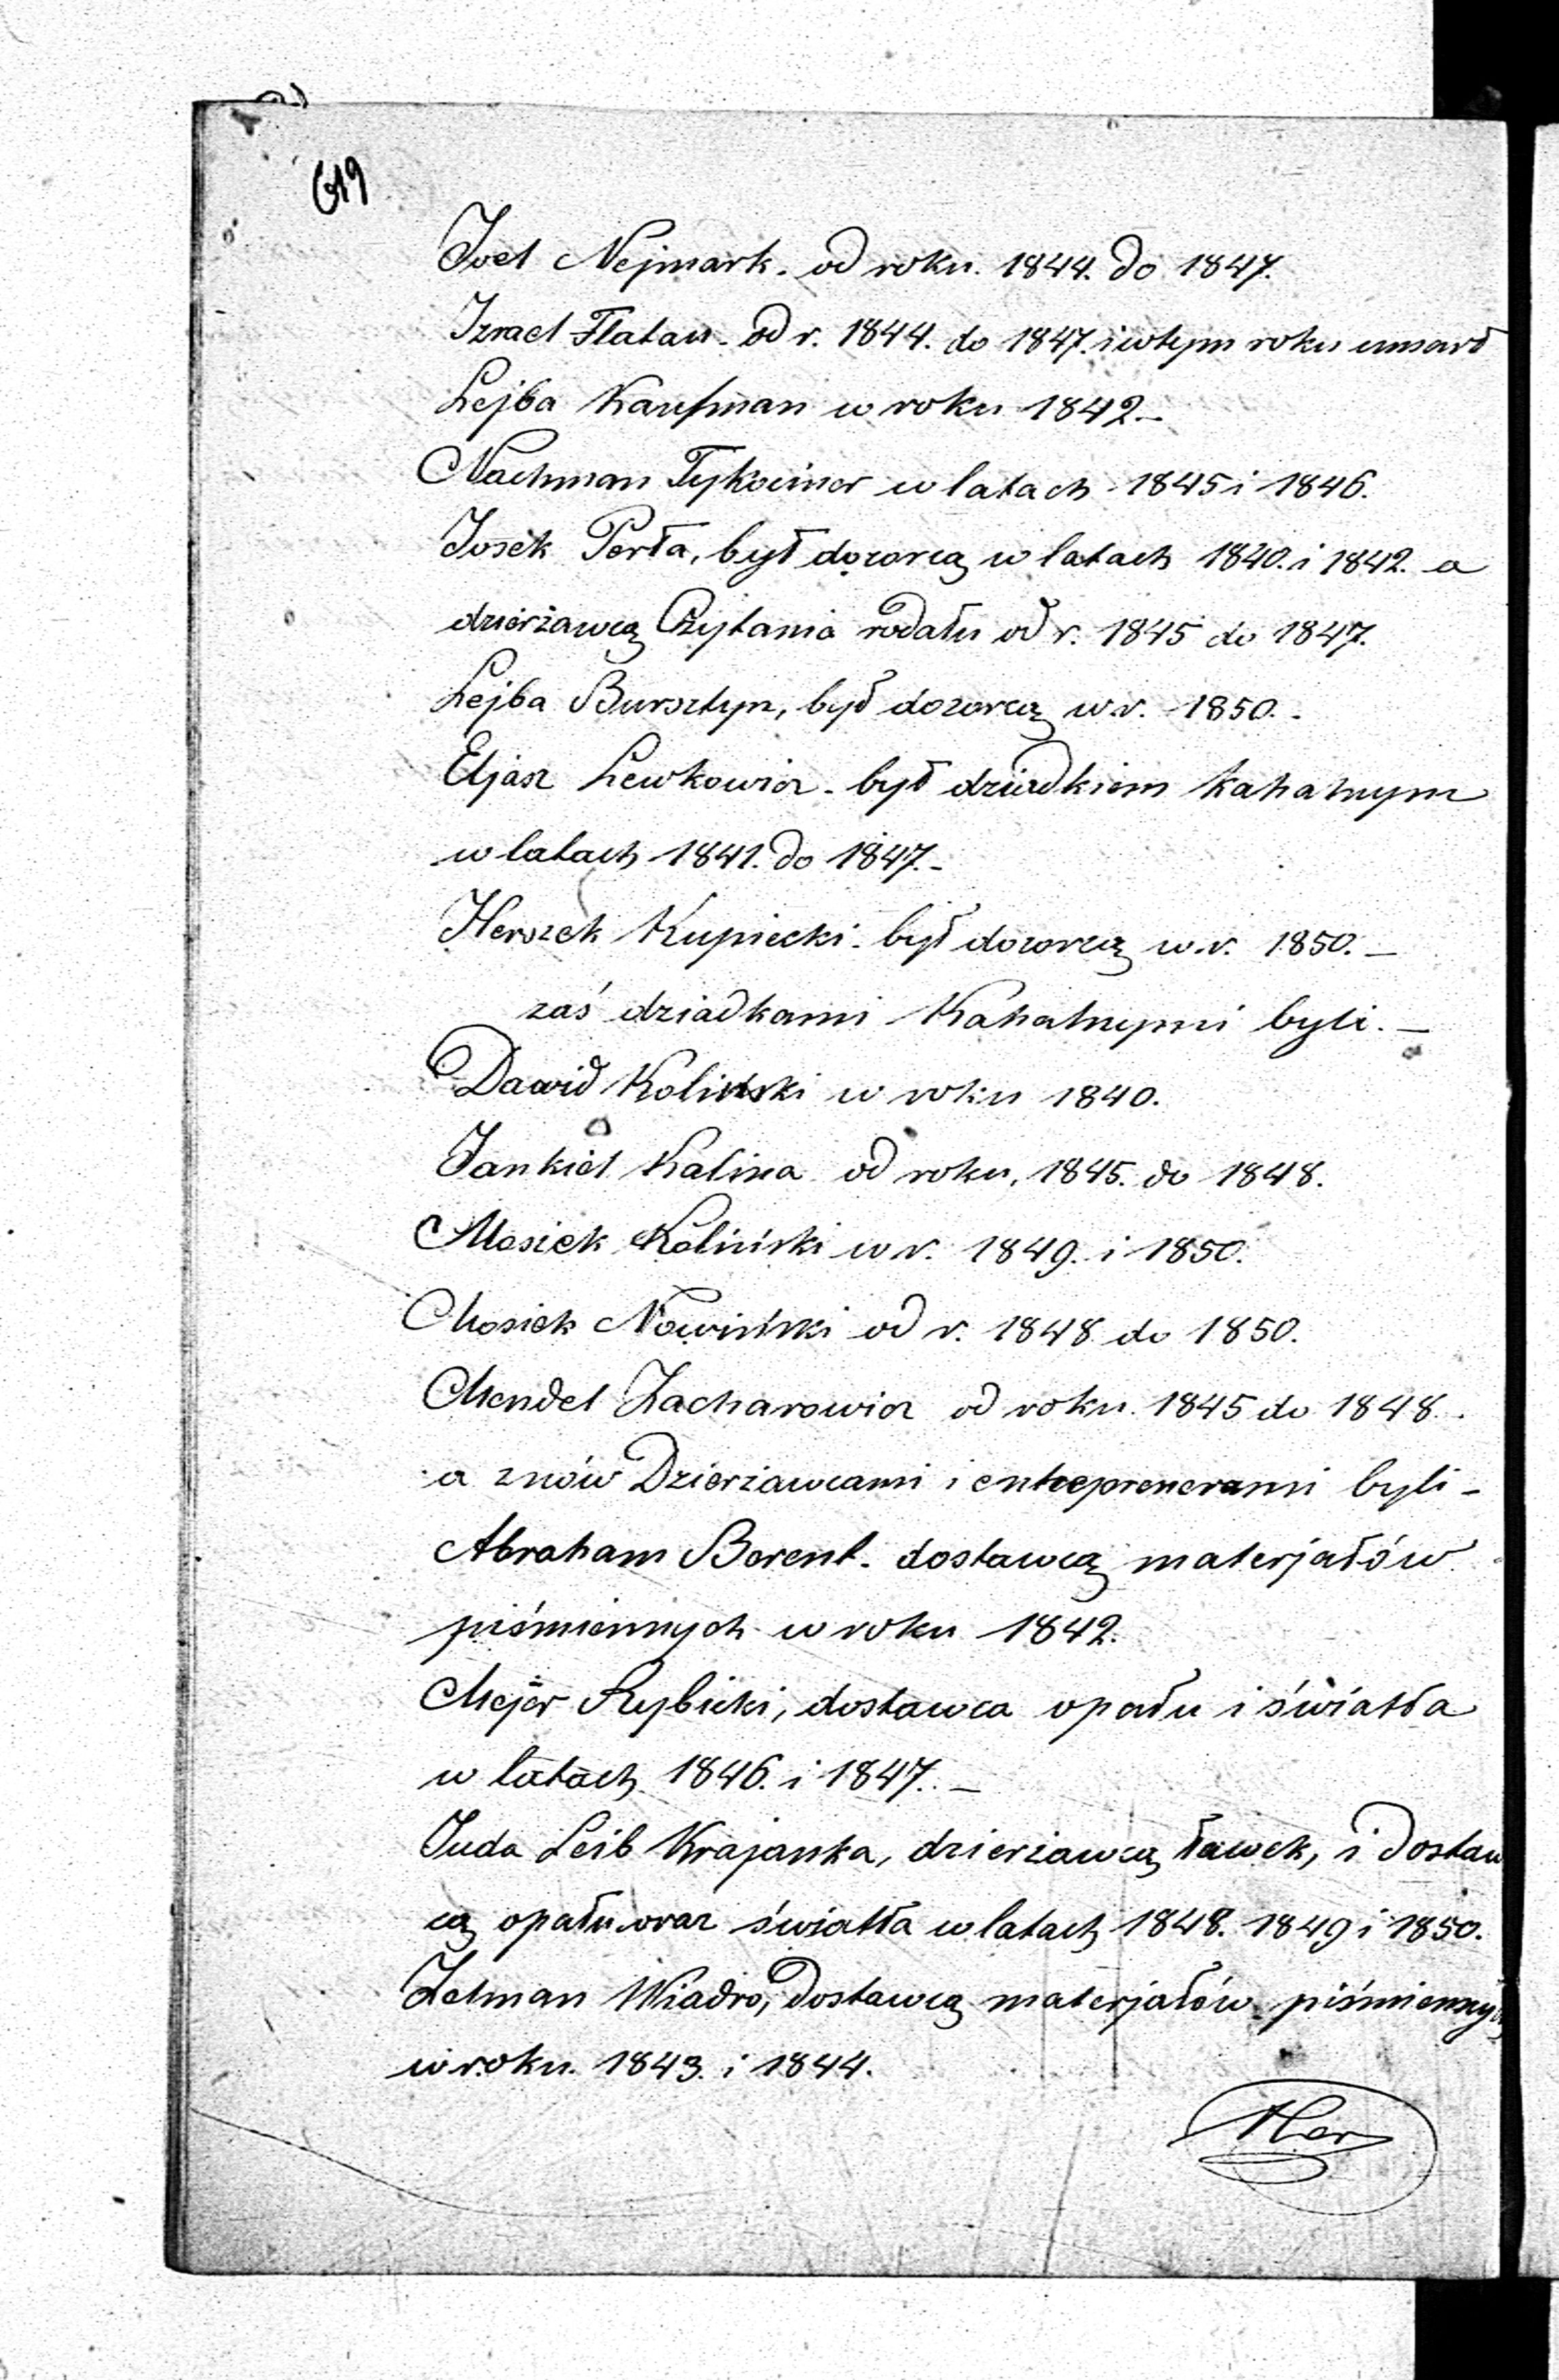 619
Joel Nejmark. od roku. 1844. do 1847.
Izrael Flatau. od r. 1844. do 1847. i wtym roku umarł
Lejba Kaufman w roku 1842 -
Nachman Tykociner w latach 1845 i 1846.
Josek Perła, był dozorcą w latach 1840. i 1842. a
dzierżawcą Czytania rodału od r. 1845 do 1847.
Lejba Bursztyn, był dozorcą w.r. 1850. -
Eljasz Lewkowicz - był dziadkiem kahalnym
w latach 1841. do 1847. -
Herszek Kupiecki - był dozorcą w.r. 1850. -
zaś dziadkami Kahalnymi byli. -
Dawid Koliński w roku 1840.
Jankiel Kalina od roku, 1845. do 1848.
Mosiek Koliński w r. 1849. i 1850.
Mosiek Nowiński od r. 1848 do 1850.
Mendel Zacharowicz od roku 1845 do 1848.
a znów Dzierżawcami i entreprenerami byli -
Abraham Berent. dostawcą materjałów
piśmiennych w roku 1842.
Mejer Rybicki, dostawca opału i światła
w latach 1846. i 1847. -
Juda Leib Krajanka, dzierżawcą ławek, i dostaw
cą opału oraz światła w latach 1848. 1849 i 1850.
Zelman Wiadro, dostawcą materjałów piśmienny
w roku 1843. i 1844.